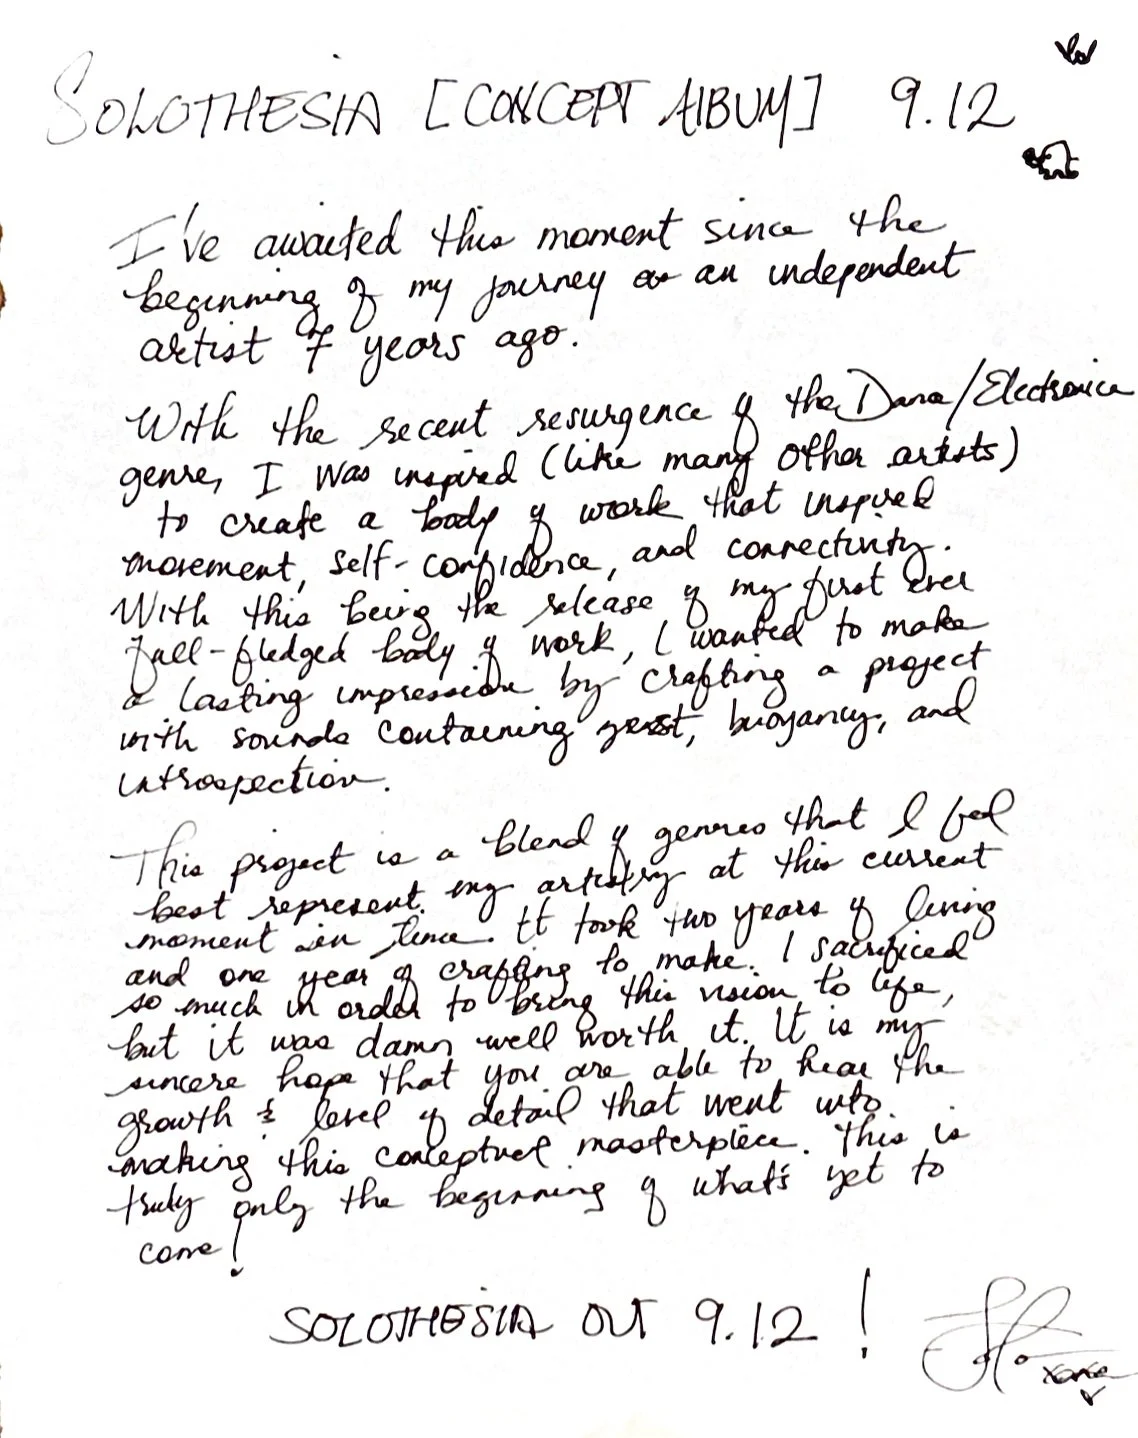 SOLOTHESIA [CONCEPT ALBUM] 9.12
I've awaited this moment since the
beginning of my journey as an independent
artist 7 years ago.
With the recent resurgence of the Dance/Electronica
genre, I was inspired (like many other artists)
to create a body of work that inspired
movement, self-confidence, and connectivity.
With this being the release of my first ever
full-fledged body of work, I wanted to make
a lasting impression by crafting a project
with sounds containing zest, buoyancy, and
introspection.
This project is a blend of genres that I feel
best represent my artistry at this current
moment in time. It took two years of living
and one year of crafting to make. I sacrificed
so much in order to bring this vision to life,
but it was damn well worth it. It is my
sincere hope that you are able to hear the
growth & level of detail that went into
making this conceptual masterpiece. This is
truly only the beginning of what's yet to
come!
SOLOTHESIA OUT 9.12!
xoxo